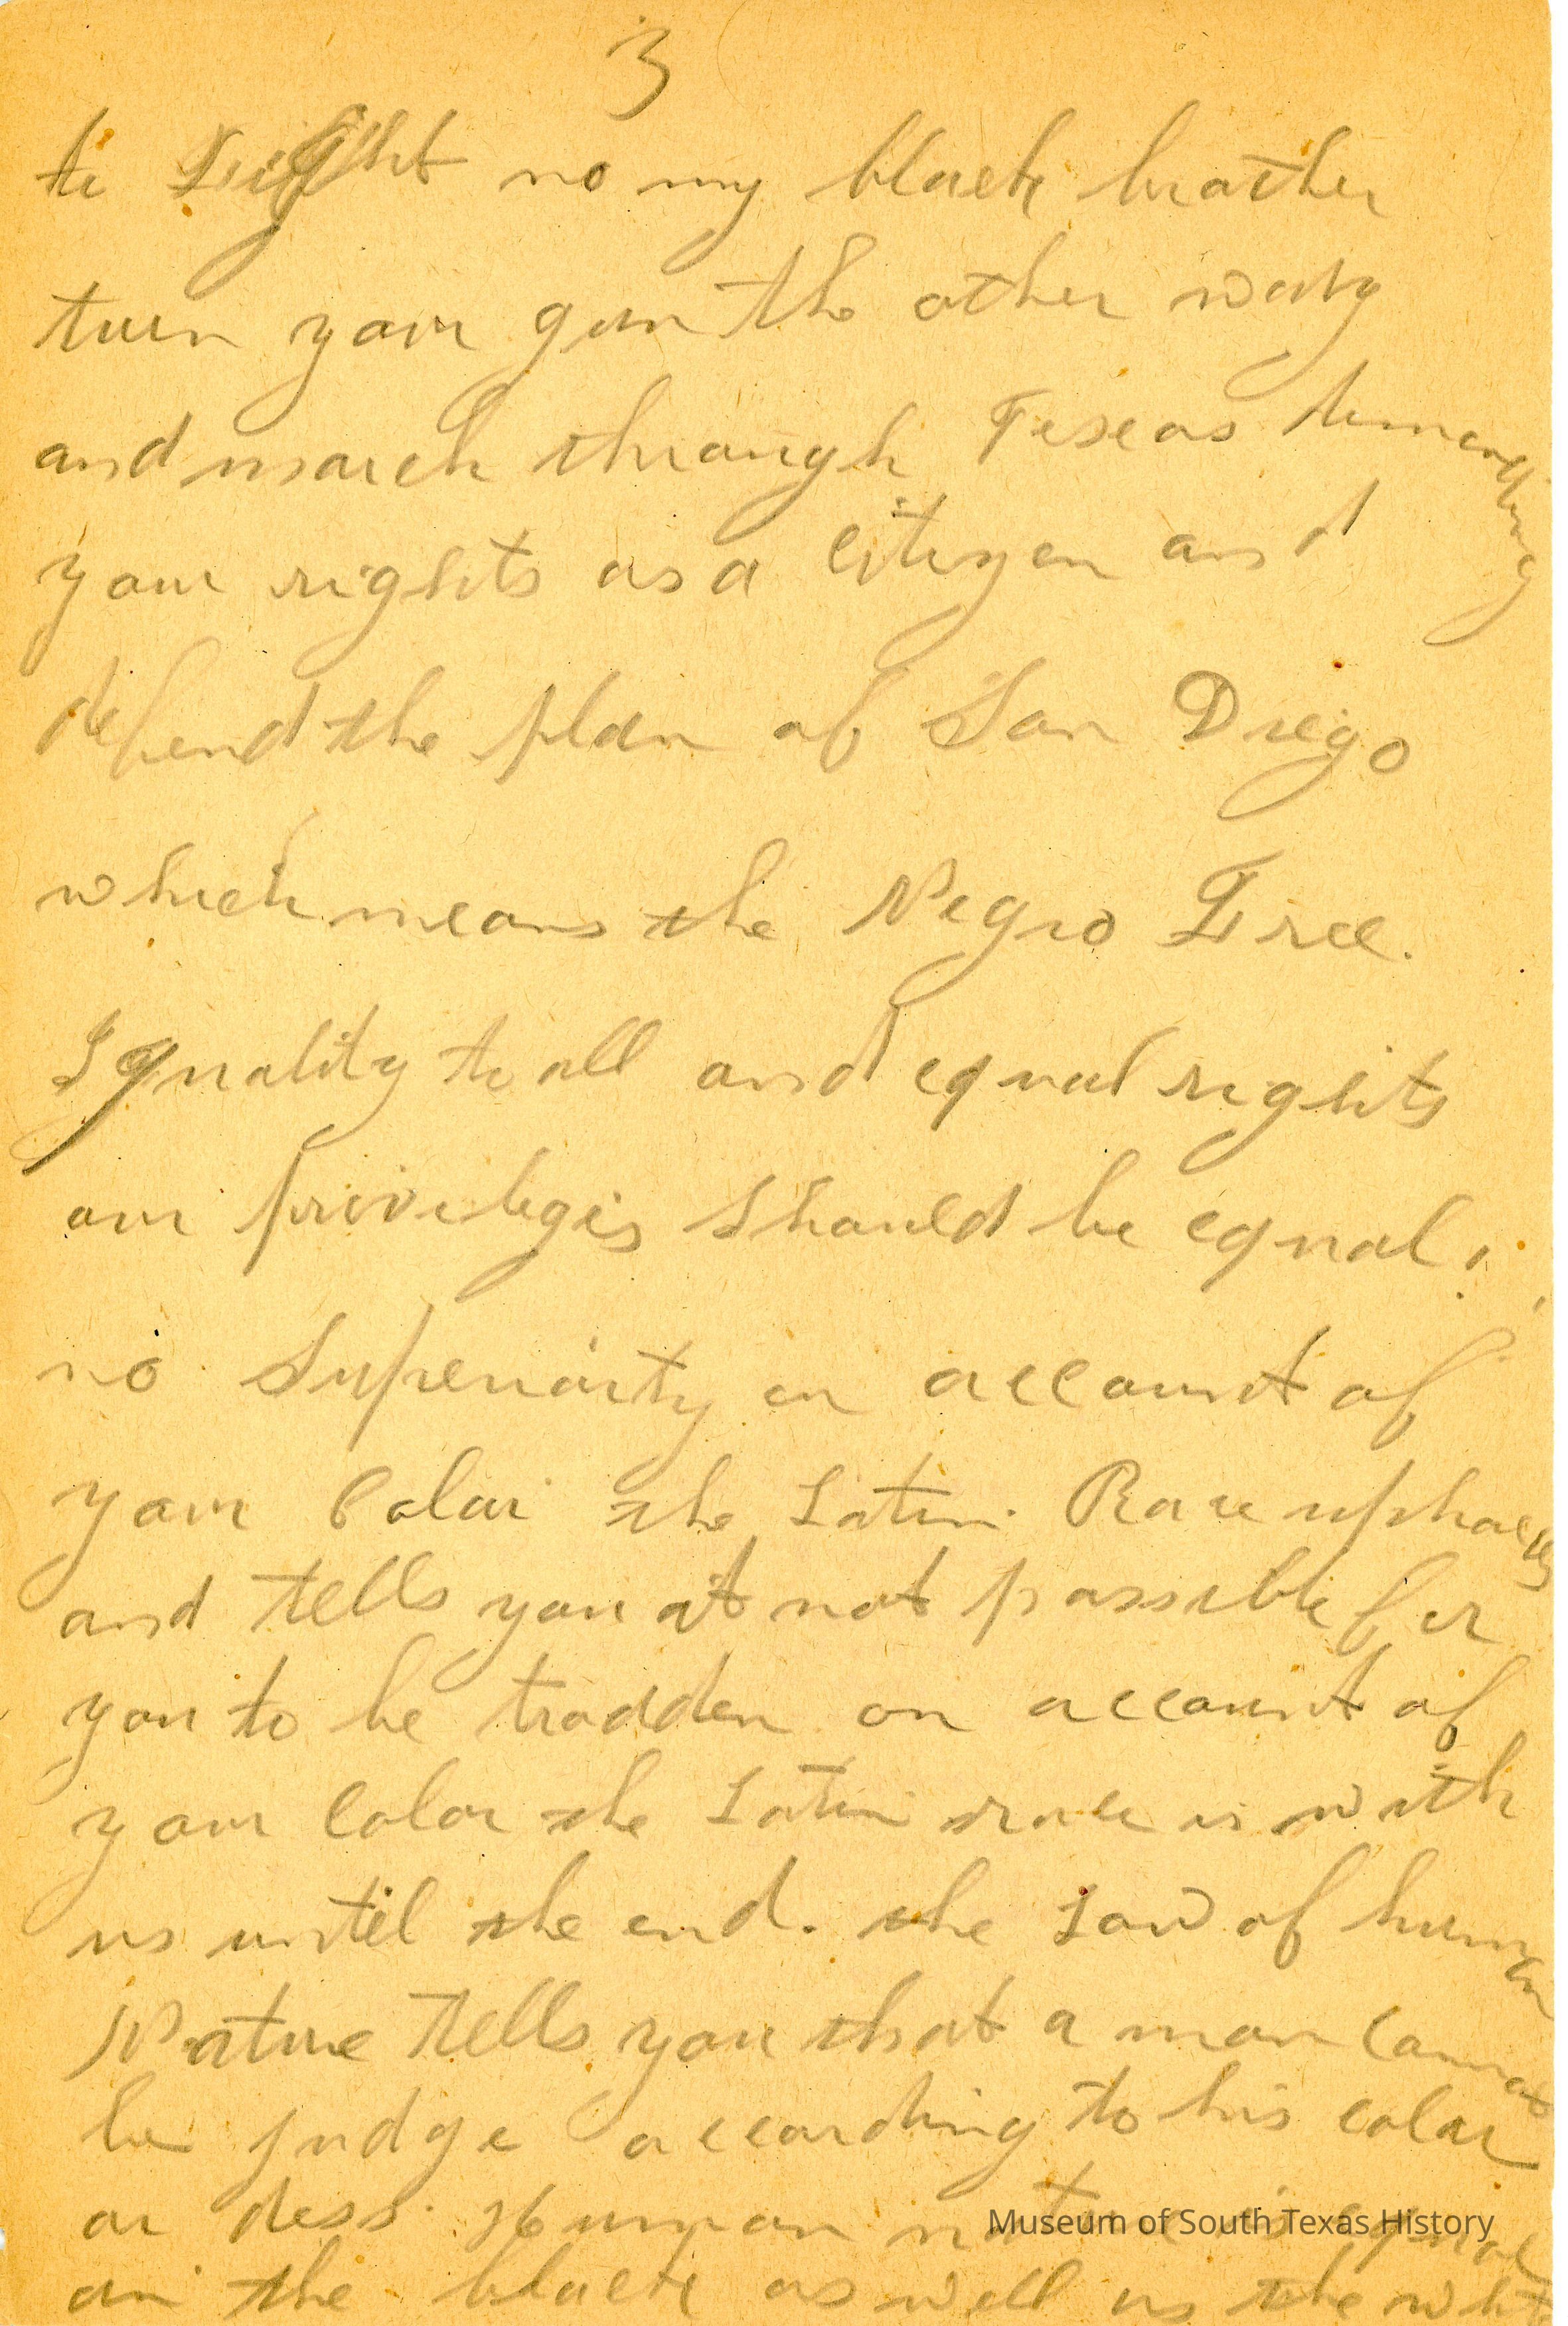 3
to Fight no my black brother
turn your gun the other way
and march through Texas demending
your rights as a Citizen and
defend the plan of San Diego
which means the Negro Free.
Equality to all and equal rights
our privileges should be equal.
no Superiority on account of
your Color the Latin Race
and tells you it not possible for
you to be trodden on account of
your Color the Latin race is with
us until the end. the Law of human
Nature tells you that a man cannot
be judge according to his color
or dess. Human equal
in the black as well as the white
Museum of South Texas History